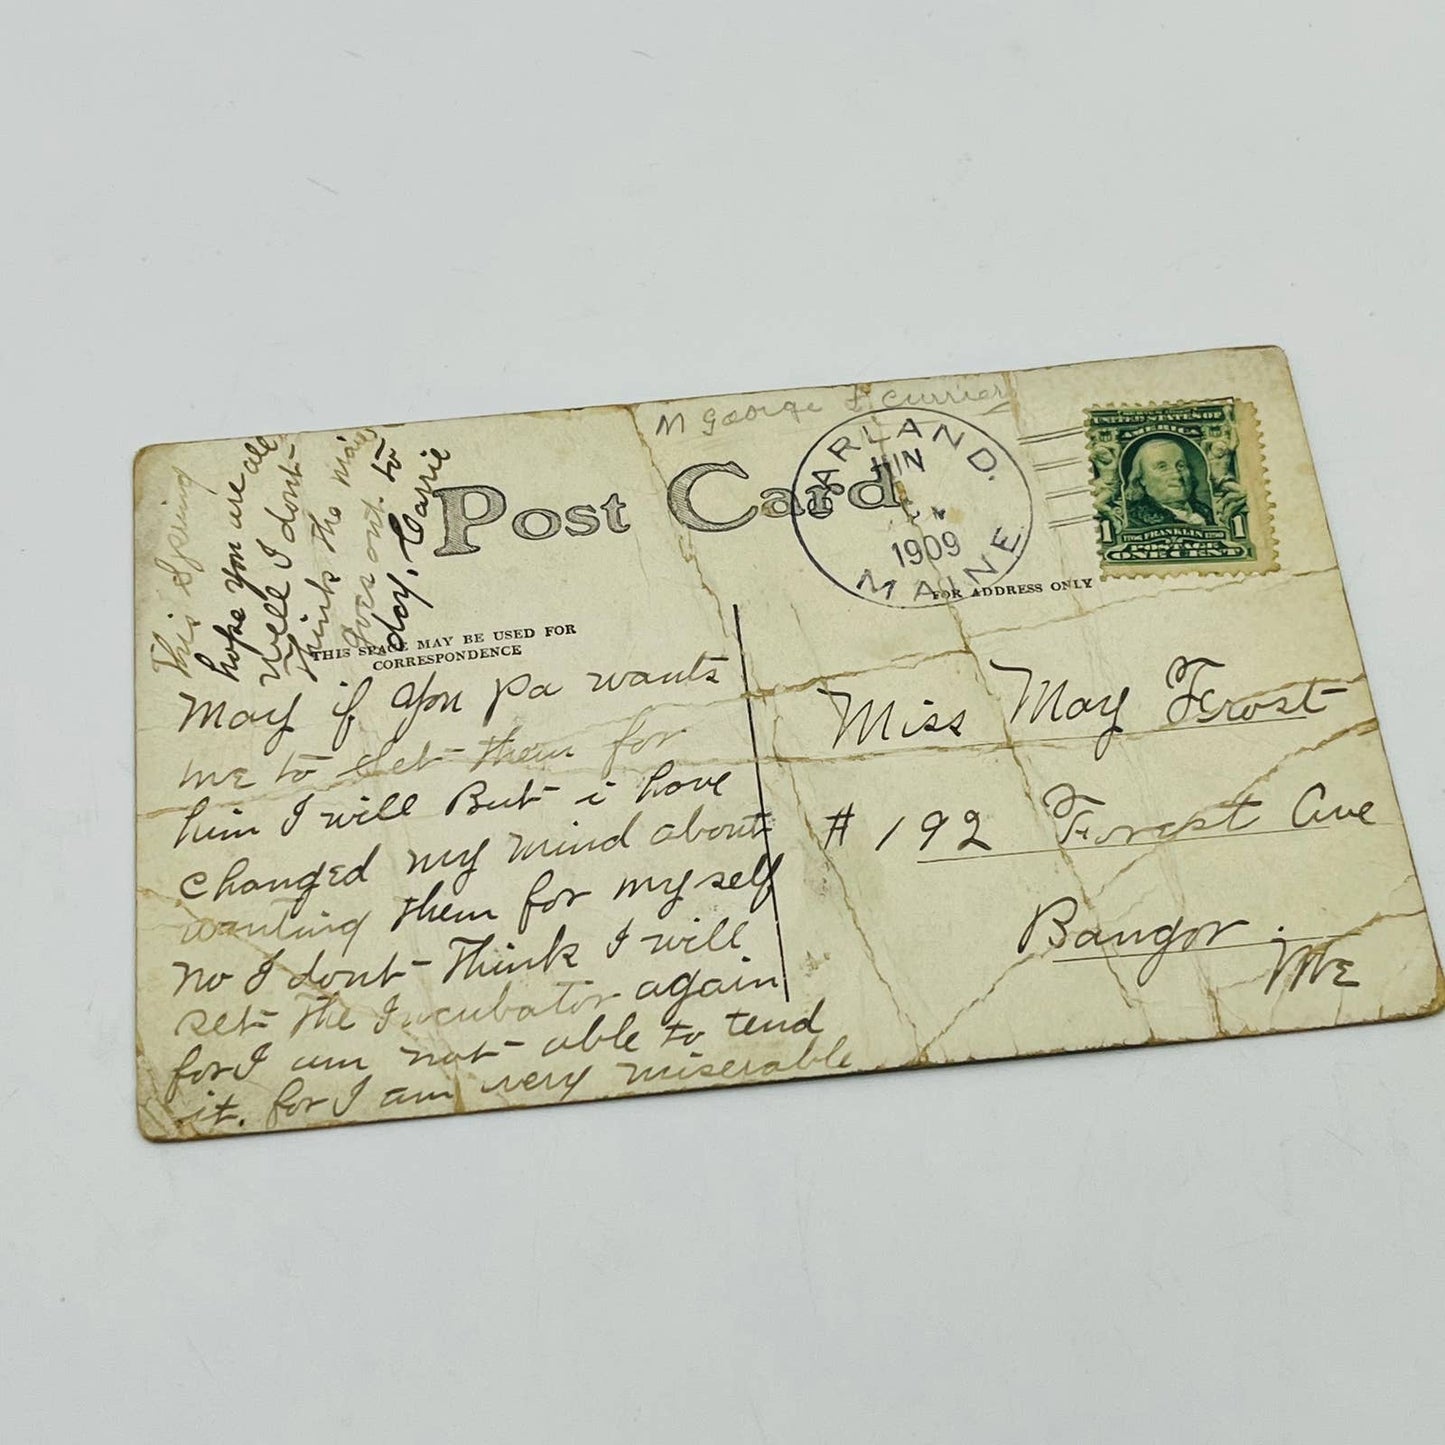 M George F Currier
Post Card
GARLAND.
JUN
1909
MAINE
UNITED STATES OF
AMERICA
1 FRANKLIN 1
POSTAGE
ONE CENT
THIS SPACE MAY BE USED FOR
CORRESPONDENCE
FOR ADDRESS ONLY
May if you pa wants
me to set them for
him I will But i have
changed my mind about
wanting them for myself
no I dont Think I will
set The Incubator again
for I am not able to tend
it. for I am very miserable
This Spring
hope you are all
well I dont
think the mail
goes out to
day, Carrie
Miss May Frost
# 192 Forest Ave
Bangor.
Me